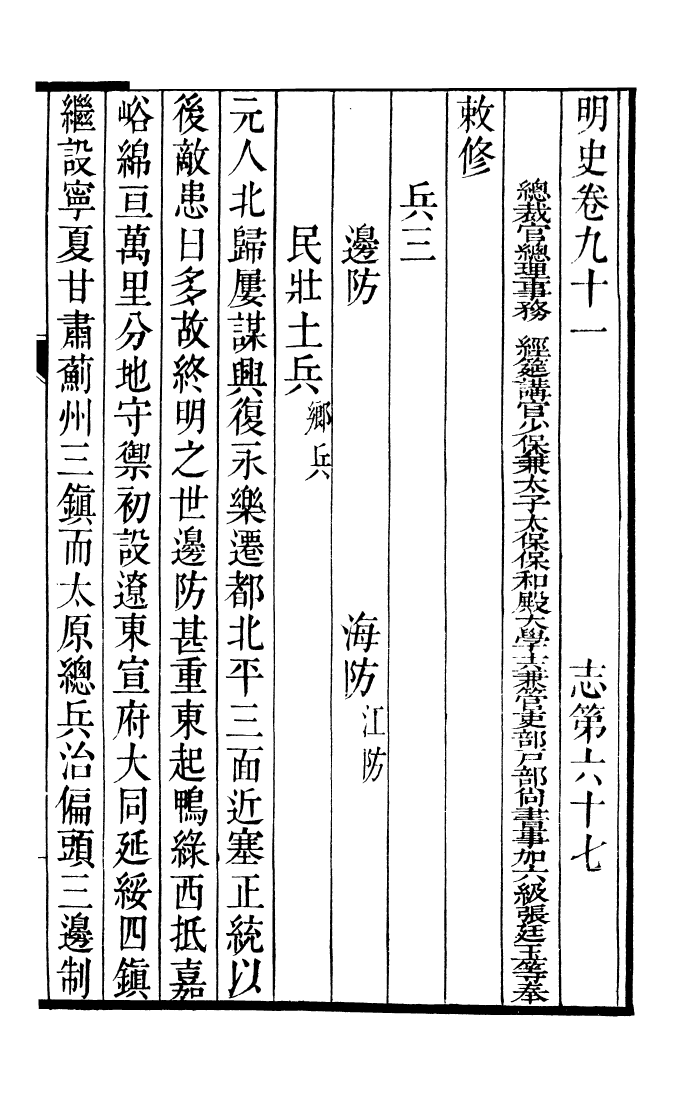 明史卷九十一　志第六十七
總裁官總理事務　經筵講官少保兼太子太保保和殿大學士兼管吏部戶部尚書事加六級張廷玉等奉
敕修
兵三
邊防　海防江防
民壯土兵鄉兵
元人北歸屢謀興復永樂遷都北平三面近塞正統以
後敵患日多故終明之世邊防甚重東起鴨綠西抵嘉
峪綿亘萬里分地守禦初設遼東宣府大同延綏四鎮
繼設寧夏甘肅薊州三鎮而太原總兵治偏頭三邊制